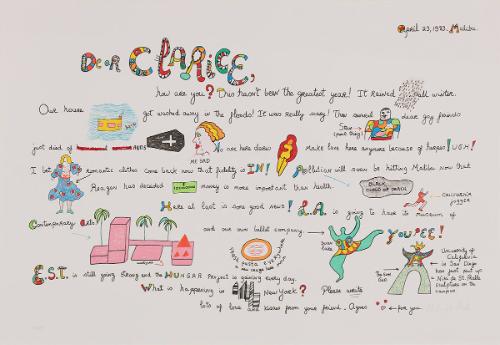 April 23, 1983. Malibu.
Dear CLARICE,
how are you? This hasn't been the greatest year! It rained all winter.
Our house got washed away in the floods! It was really scary! Then our dear gay friend
Steve
(poor thing)
just died of AIDS No one here dares Make love here anymore because of herpes! UGH!
ME SAD
I bet romantic clothes come back now that fidelity is IN! Pollution will soon be hitting Malibu now that
Reagan has decided money is more important than health.
BLACK CLOUD OF SMOG
CALIFORNIA JOGGER
Here at last is some good news! L.A. is going to have its museum of
Contemporary Art! and our own ballet company
Swan Lake
YOUPEE!
University of California in San Diego has just put up Niki de St. Phalle sculpture on the campus
The Sun God
E.S.T. is still going strong and the HUNGER Project is gaining every day.
What is happening in New York? Please write
lots of love and kisses from your friend. Agnes for you